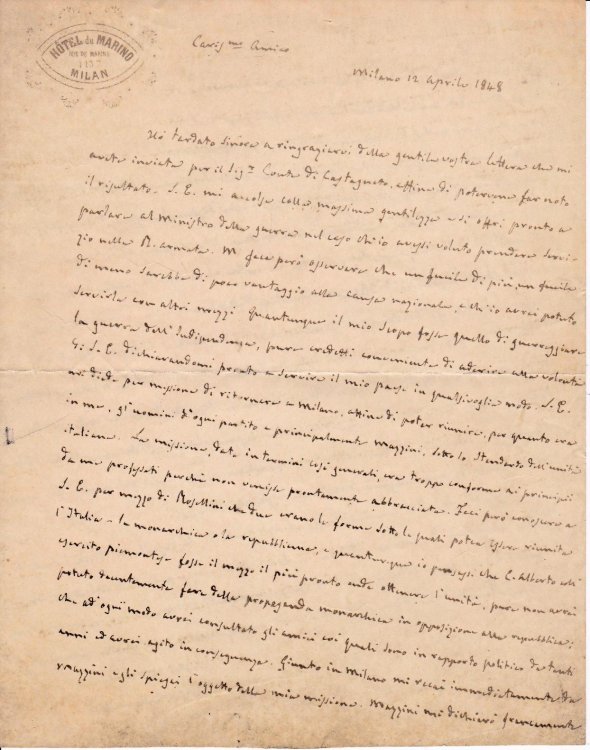 HÔTEL du MARINO
RUE DE MARINE
1137
MILAN
Caris.mo Amico
Milano 12 Aprile 1848
Ho tardato sinora a ringraziarvi della gentile vostra lettera che mi
avete inviata per il Sig.r Conte di Castagneto, affine di potervene far noto
il risultato. S. E. mi accolse colla massima gentilezza e si offrì pronto a
parlare al Ministro della guerra nel caso ch'io avessi voluto prendere servi-
zio nella R. armata. M. fece però osservare che un fucile di più, un fucile
di meno sarebbe di poco vantaggio alla causa nazionale, e ch'io avrei potuto
servirla con altri mezzi. Quantunque il mio scopo fosse quello di guerreggiare
la guerra dell'Indipendenza, pure credetti conveniente di aderire alla volontà
di S. E. dichiarandomi pronto a servire il mio paese in qualsivoglia modo. S. E.
mi diede per missione di ritornare a Milano, affine di poter riunire, per quanto era
in me, gl'uomini d'ogni partito e principalmente Mazzini, sotto lo stendardo dell'unità
italiana. La missione, data in termini così generali, era troppo conforme ai principii
da me professati perchè non venisse prontamente abbracciata. Feci però conoscere a
S. E. per mezzo di Rosellini che due erano le forme sotto le quali potea essere riunita
l'Italia - la monarchica o la repubblicana, e quantunque io pensassi che C. Alberto coll'
esercito piemontese fosse il mezzo il più pronto onde ottenere l'unità, pure non avrei
potuto decentemente fare della propaganda monarchica in opposizione alla repubblica;
che ad ogni modo avrei consultato gli amici coi quali sono in rapporto politico da tanti
anni ed avrei agito in conseguenza. Giunto in Milano mi recai immediatamente da
Mazzini e gli spiegai l'oggetto della mia missione. Mazzini mi dichiarò francamente